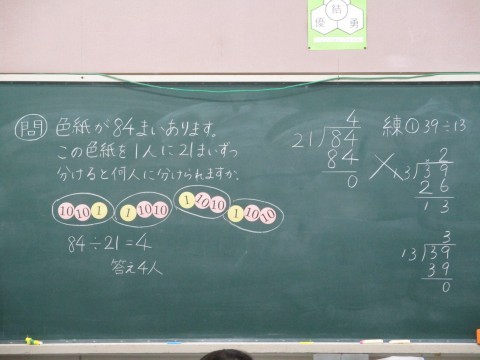 結
優 勇
問 色紙が84まいあります。
この色紙を1人に21まいずつ
分けると何人に分けられますか。
10 10 1 1 10 10 1 10 10 1 10 10
84÷21=4
答え4人
4
21)84
84
0
練① 39÷13
2
13)39
26
13
3
13)39
39
0